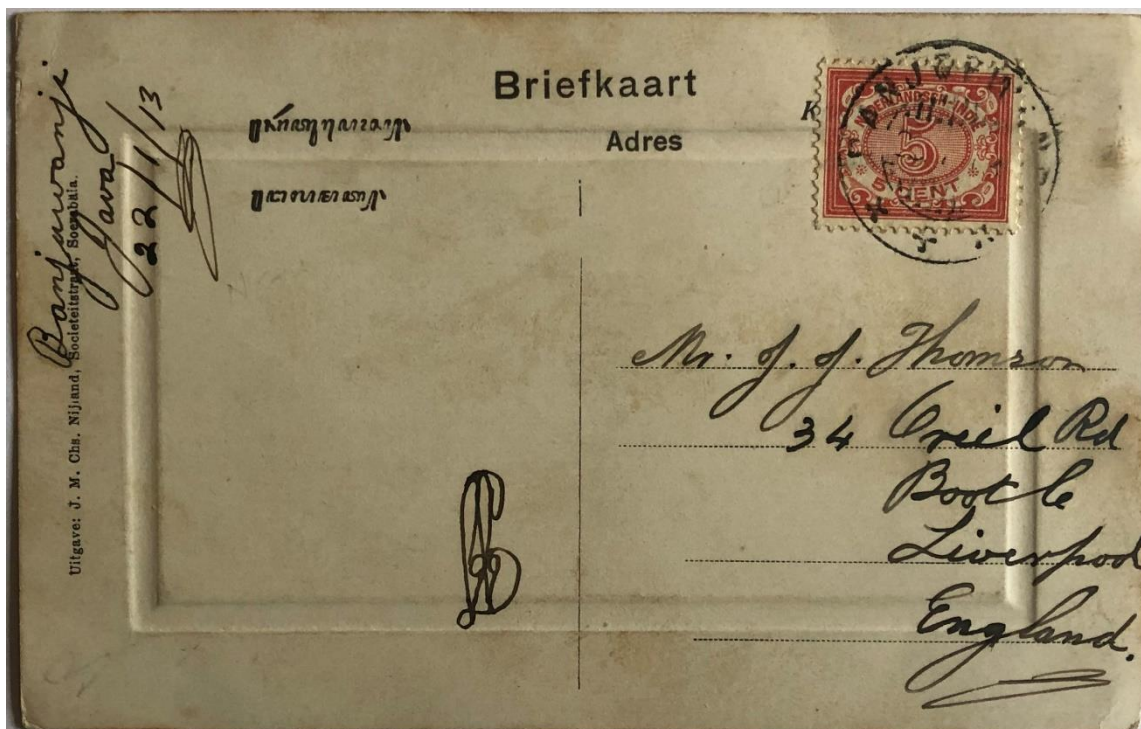 Briefkaart
Adres
NEDERLANDSCH-INDIE
5
5 CENT
Banjuwanji
Java
22/11/13
Uitgave: J. M. Chs. Nijland, Societeitstraat, Soerabaia.
Mr. J. J. Thomson
34 Oriel Rd
Bootle
Liverpool
England.